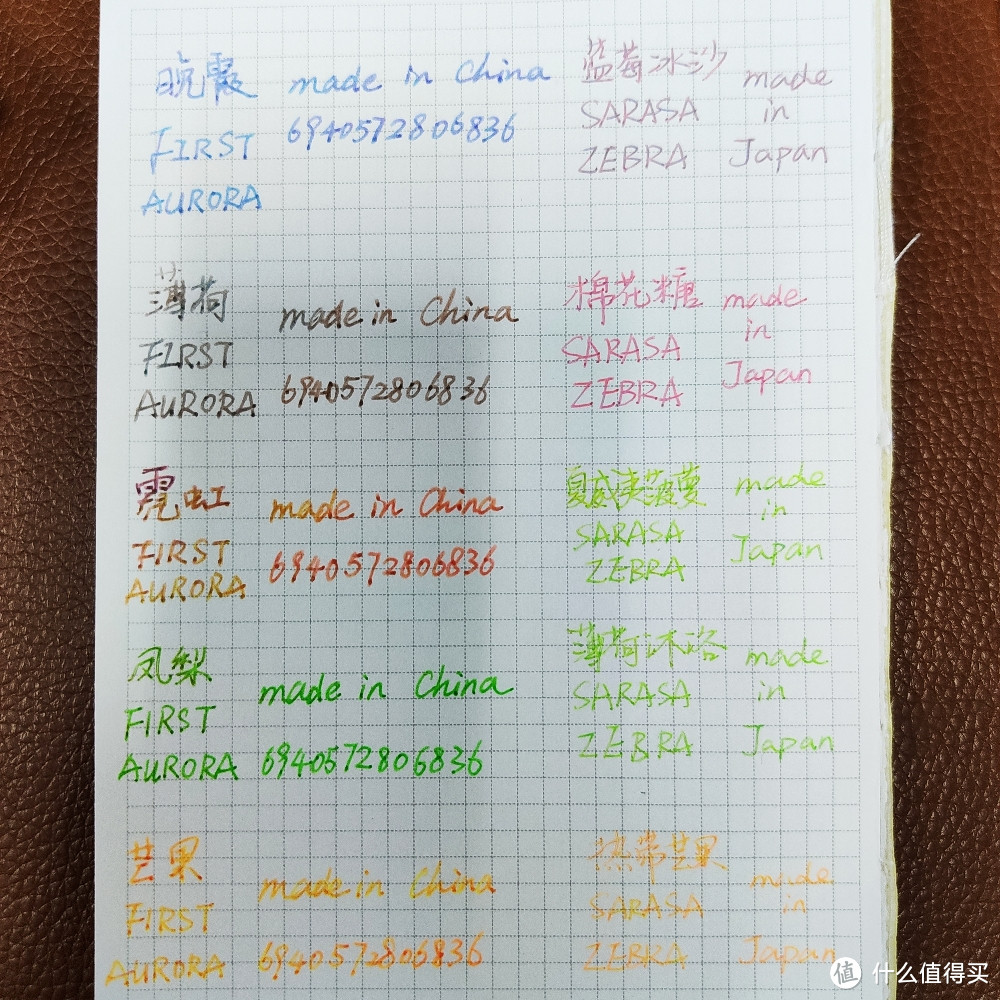 晚霞 made in China
FIRST 6940572806836
AURORA
蓝莓冰沙 made
SARASA in
ZEBRA Japan
薄荷 made in China
FIRST
AURORA 6940572806836
棉花糖 made
SARASA in
ZEBRA Japan
霓虹 made in China
FIRST 6940572806836
AURORA
夏威夷菠萝 made
SARASA in
ZEBRA Japan
凤梨 made in China
FIRST
AURORA 6940572806836
薄荷沐浴 made
SARASA in
ZEBRA Japan
芒果 made in China
FIRST
AURORA 6940572806836
热带芒果 made
SARASA in
ZEBRA Japan
值 什么值得买